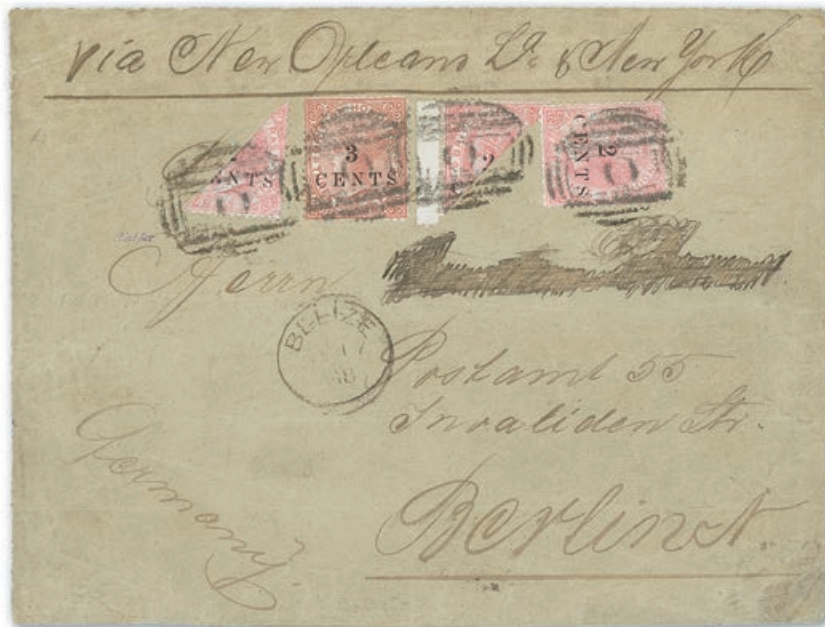 via New Orleans La & New York
CENTS
3
CENTS
2
2
CENTS
Herrn
BELIZE
Postamt 55
Invaliden Str.
Berlin N.
Germany.